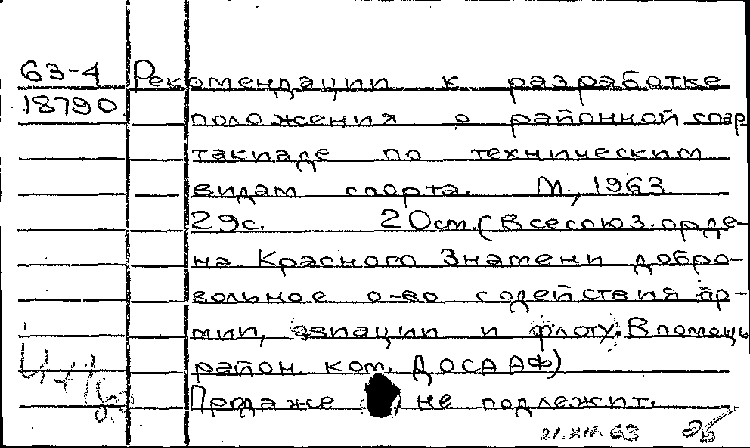 63-4 Рекомендации к разработке
18790 положения о районной спар
такиаде по техническим
видам спорта. М, 1963
29с. 20см. (Всесоюз. орде-
на Красного Знамени добро-
вольное о-во содействия ар-
мии, авиации и флоту. В помощь
район. ком. ДОСААФ)
Продаже не подлежит.
21.XII.63